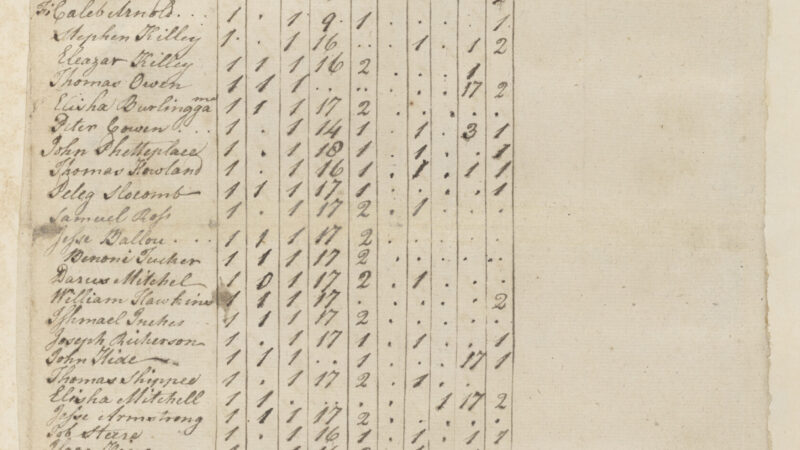 Fi: Caleb Arnold . . . 1 . 1 9 . 1 . . . . . 1
Stephen Killey 1 . 1 16 . . . 1 . 1 2
Eleazar Killey 1 1 1 16 2 . . . . 1
Thomas Owen 1 1 1 . . . . . . . 17 2
Elisha Burlinggame 1 1 1 17 2 . . . . . .
Peter Cowen . . . 1 . 1 14 1 . 1 . 3 1
John Phetteplace 1 . 1 18 1 . 1 . . 1
Thomas Howland 1 . 1 16 1 . 1 . 1 1
Peleg Slocomb 1 1 1 17 1 . . . . 1
Samuel Ross 1 . 1 17 2 . 1 . . .
Jesse Ballou . . . 1 1 1 17 2 . . . . .
Benoni Tucker 1 1 1 17 2 . . . . .
Darus Mitchel 1 0 1 17 2 . 1 . . .
William Hawkins 1 1 1 17 . . . . . 2
Ishmael Inches . . 1 1 1 17 2 . . . . .
Joseph Rickerson 1 . 1 17 1 . 1 . . 1
John Hide 1 1 1 . . 1 . . . 17 1
Thomas Shippee 1 . 1 17 2 . 1 . .
Elisha Mitchell 1 1 . . . . . . 1 17 2
Jesse Armstrong 1 1 1 17 2 . . . . .
Job Steire 1 . 1 16 1 . 1 . 1 1